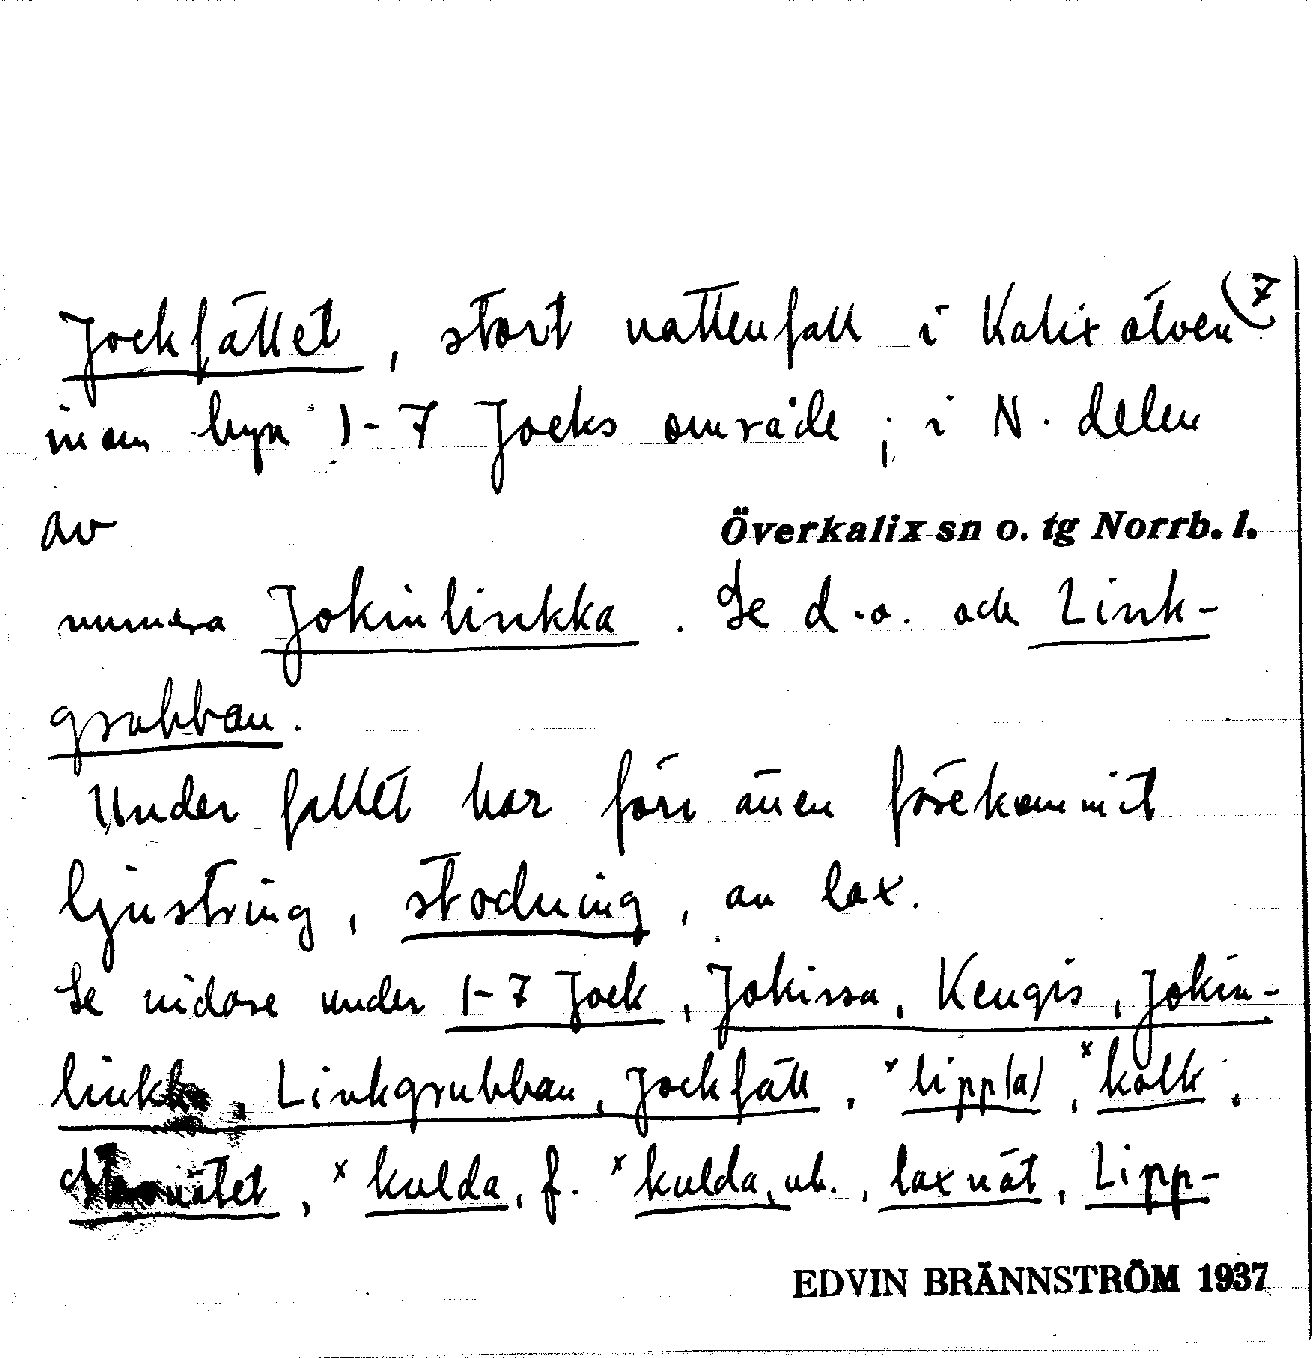 Jockfallet, stort vattenfall i Kalix älven (7
inom byn 1-7 Jocks område; i N. delen
av Överkalix sn o. tg Norrb. l.
numera Jokinlinkka. Se d.o. och Link-
grubban.
Under fallet har förr även förekommit
ljustring, stodning, av lax.
Se vidare under 1-7 Jock, Jokissa, Kengis, Jokin-
linkka, Linkgrubban, Jockfall, ˣlipp(a), ˣkolk,
ˣkulda, f. ˣkulda, vb., laxnät, Lipp-
EDVIN BRÄNNSTRÖM 1937